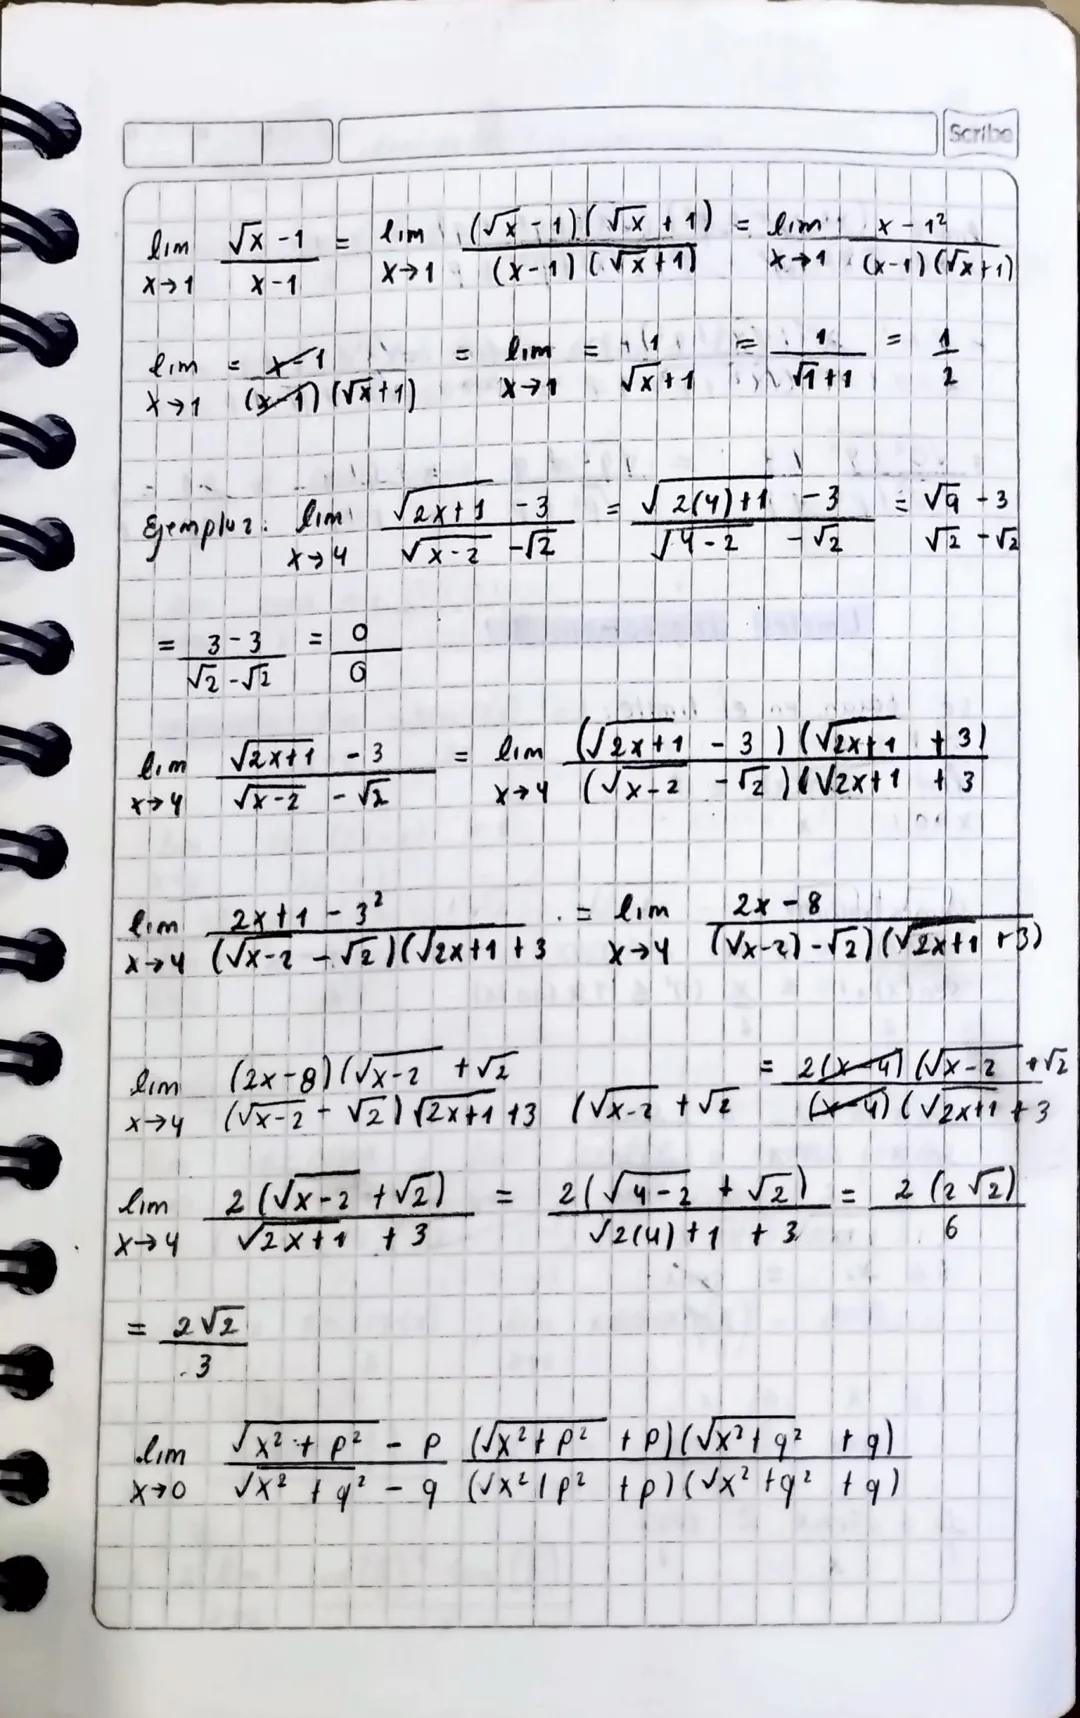 Scribe
lim x→1 (√x - 1)/(x - 1) = lim x→1 ((√x - 1)(√x + 1))/((x - 1)(√x + 1)) = lim x→1 (x - 1²)/((x - 1)(√x + 1))
lim x→1 = (x - 1)/((x - 1)(√x + 1)) = lim x→1 = 1/(√x + 1) = 1/(√1 + 1) = 1/2
Ejemplo 2: lim x→4 (√(2x+1) - 3)/(√(x-2) - √2) = (√(2(4)+1) - 3)/(√(4-2) - √2) = (√9 - 3)/(√2 - √2)
= (3 - 3)/(√2 - √2) = 0/0
lim x→4 (√(2x+1) - 3)/(√(x-2) - √2) = lim x→4 ((√(2x+1) - 3)(√(2x+1) + 3))/((√(x-2) - √2)(√(2x+1) + 3
lim x→4 (2x+1 - 3²)/((√(x-2) - √2)(√(2x+1) + 3 = lim x→4 (2x - 8)/((√x-2) - √2)(√(2x+1) + 3)
lim x→4 (2x-8)(√(x-2) + √2 / (√(x-2) - √2)√(2x+1) + 3 (√(x-2) + √2 = 2(x-4)(√(x-2) + √2 / (x-4)(√(2x+1) + 3
lim x→4 2(√(x-2) + √2)/(√(2x+1) + 3) = 2(√(4-2) + √2)/(√(2(4)+1) + 3) = 2(2√2)/6
= 2√2/3
lim x→0 (√(x² + p²) - p)/(√(x² + q²) - q) ((√(x² + p²) + p)(√(x² + q²) + q))/((√(x² + p²) + p)(√(x² + q²) + q))